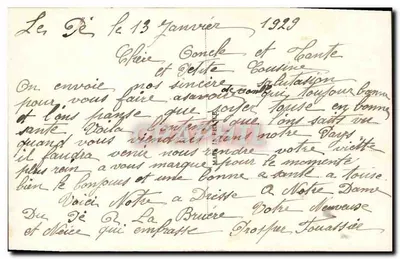 Le Pé le 13 Janvier 1929
Chèr Oncle et Tante
et Petite Cousine
On envoie nos sincère salutassion
pour vous faire asavoir de santé qui toujour bonne
et l'ons panse que soyer touse en bonne
sante Voila que l'ons sait vu
quand vous vendrez vent notre Pays
il faudra venir nous rendre votre visite
plus rien a vous marque pour le momente
bien le Bonjour et une bonne a sante a touse
Voici Notre a Drisse a Notre Dame
Du Pé a La Bruère Votre Neuveuse
et Nièce qui embrasse Prosper Touassée